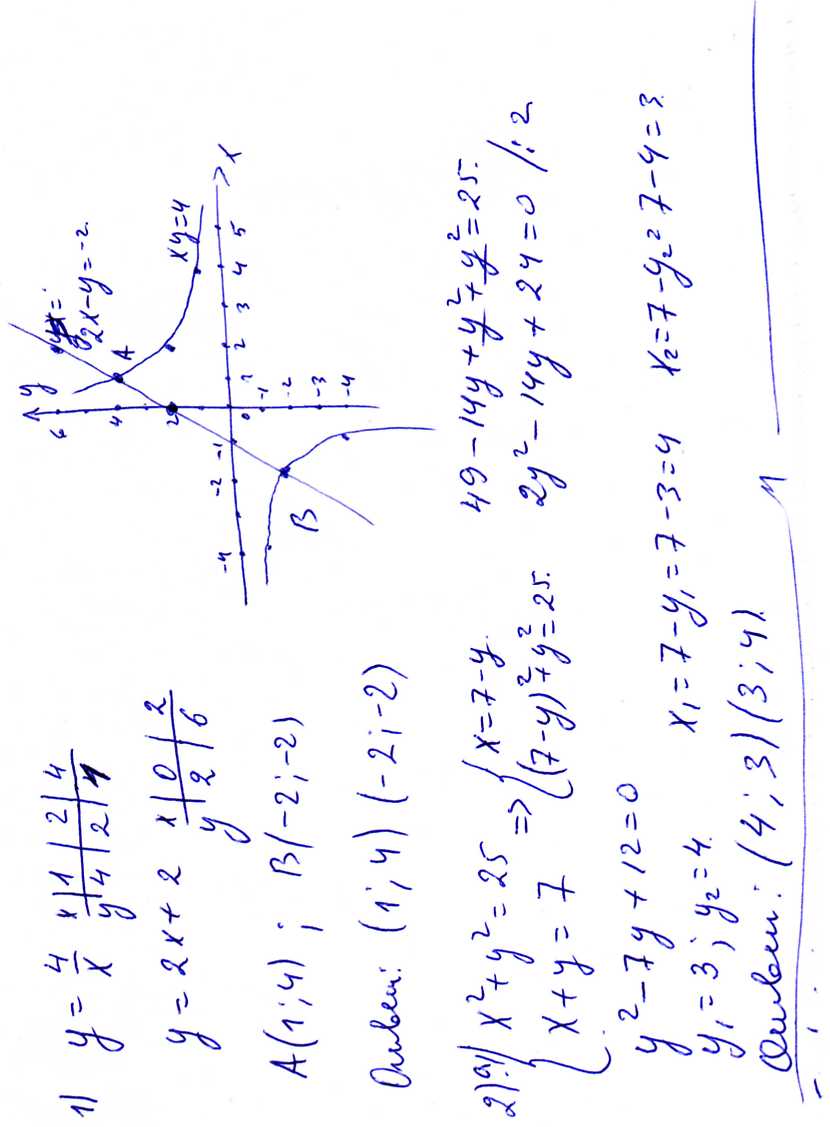 1) y = 4/x
x | 1 | 2 | 4
y | 4 | 2 | 1
y = 2x + 2
x | 0 | 2
y | 2 | 6
A(1; 4) ; B(-2; -2)
Ответ: (1; 4) (-2; -2)
y
6
4
2
0
-1
-2
-3
-4
-4
-2
-1
1
2
3
4
5
x
A
B
2x-y=-2.
xy=4
2) a) { x² + y² = 25
x + y = 7
=> { x = 7-y.
(7-y)² + y² = 25.
49 - 14y + y² + y² = 25.
2y² - 14y + 24 = 0 /: 2
y² - 7y + 12 = 0
y₁ = 3; y₂ = 4.
x₁ = 7 - y₁ = 7 - 3 = 4
x₂ = 7 - y₂ = 7 - 4 = 3.
Ответ: (4; 3) (3; 4)